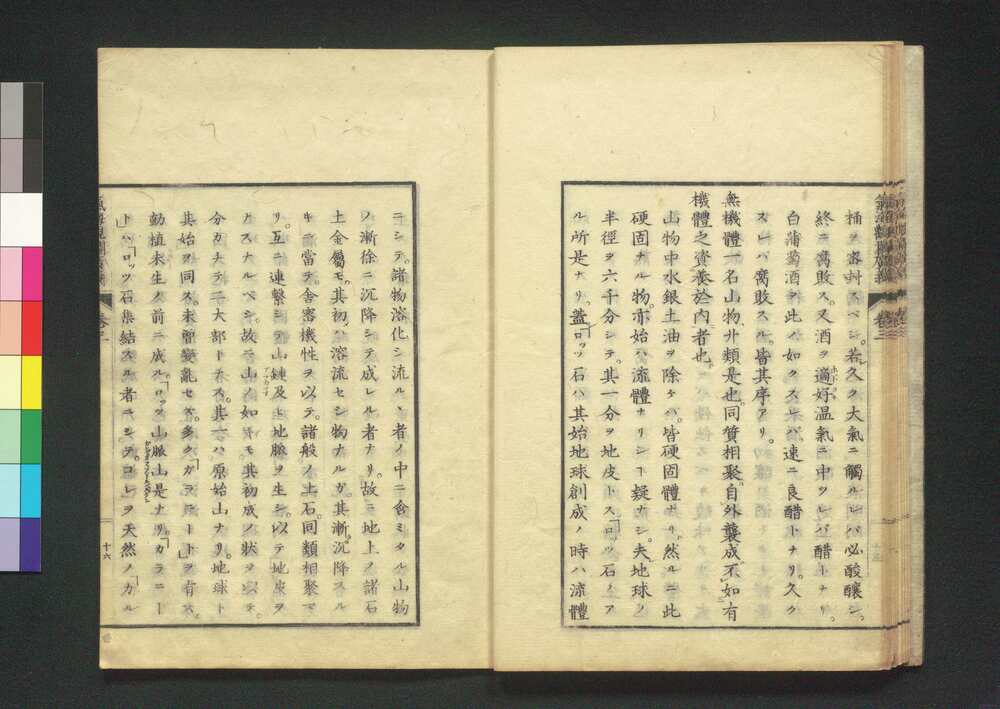 桶ヲ審料スベシ。若久ク大氣ニ觸ルレバ必酸釀シ。
終ニ腐敗ス。又酒ヲ適好温氣ニ中ツレバ醋トナリ。
白蒲萄酒ヲ此ノ如クスレバ速ニ良醋トナリ。久ク
スレバ腐敗スル。皆其序アリ。
無機體一名山物、廾類是也。同質相聚、自外襲成。不如有
機體之資養於内者也。
山物中水銀土油ヲ除ケバ。皆硬固體ナリ。然ルニ此
硬固ナル物。亦始ハ流體ナリシト疑ナシ。夫地球ノ
半徑ヲ六千分シテ。其一分ヲ地皮トス。「ロッツ石ノア
ル所是ナリ。蓋「ロッツ石ハ其始地球創成ノ時ハ流體
ニシテ。諸物溶化シ流ルヽ者ノ中ニ含ミタル山物
ノ漸徐ニ沉降シテ成レル者ナリ。故ニ地上ノ諸石
土金屬モ。其初ハ溶流セシ物ナルガ。其漸沉降スル
キニ當テ。含畜機性ヲ以テ。諸般ノ土石。同類相聚マ
リ。互ニ連繫シテ山鏈及ヒ地脈ヲ生シ。以テ地皮ヲ
ナスナルベシ。故ニ山ノ如キモ其初成ノ狀ヲ以テ。
分カチテ二大部トナス。其一ハ原始山ナリ。地球ト
其始ヲ同ス。未曽變亂セズ。多クガラニート」ヲ有ス。
動植未生ノ前ニ成ル。「ロッツ山脈山是ナリ。「ガラニー
ト」ハ「ロッツ石集結スル者ニシテ。コレヲ天然ノ「カル
十六